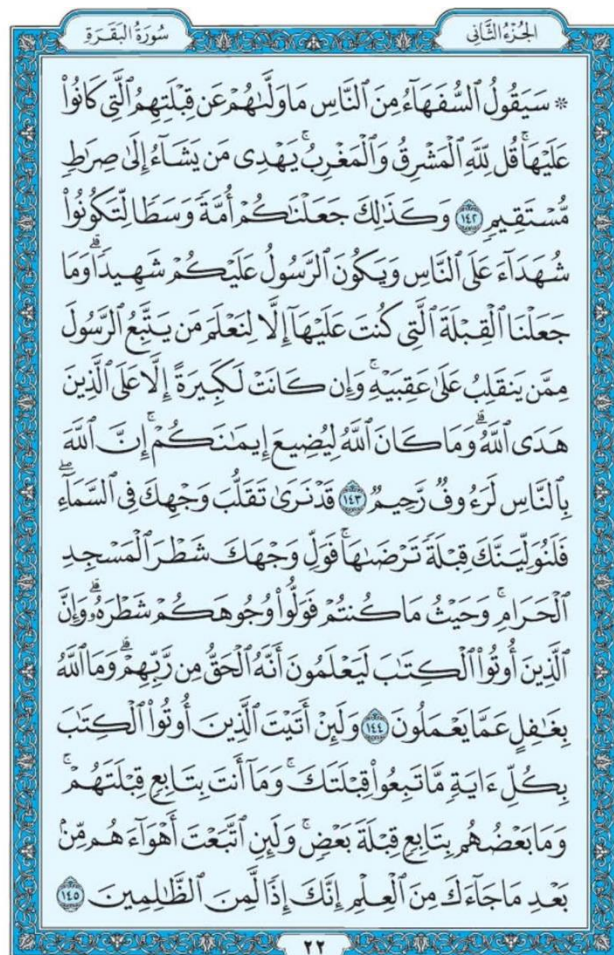 سُورَةُ البَقَرَةِ
الجُزْءُ الثَّانِي
۞ سَيَقُولُ ٱلسُّفَهَآءُ مِنَ ٱلنَّاسِ مَا وَلَّىٰهُمْ عَن قِبْلَتِهِمُ ٱلَّتِى كَانُوا۟
عَلَيْهَا ۚ قُل لِّلَّهِ ٱلْمَشْرِقُ وَٱلْمَغْرِبُ ۚ يَهْدِى مَن يَشَآءُ إِلَىٰ صِرَٰطٍ
مُّسْتَقِيمٍ ١٤٢ وَكَذَٰلِكَ جَعَلْنَٰكُمْ أُمَّةً وَسَطًا لِّتَكُونُوا۟
شُهَدَآءَ عَلَى ٱلنَّاسِ وَيَكُونَ ٱلرَّسُولُ عَلَيْكُمْ شَهِيدًا ۗ وَمَا
جَعَلْنَا ٱلْقِبْلَةَ ٱلَّتِى كُنتَ عَلَيْهَآ إِلَّا لِنَعْلَمَ مَن يَتَّبِعُ ٱلرَّسُولَ
مِمَّن يَنقَلِبُ عَلَىٰ عَقِبَيْهِ ۚ وَإِن كَانَتْ لَكَبِيرَةً إِلَّا عَلَى ٱلَّذِينَ
هَدَى ٱللَّهُ ۗ وَمَا كَانَ ٱللَّهُ لِيُضِيعَ إِيمَٰنَكُمْ ۚ إِنَّ ٱللَّهَ
بِٱلنَّاسِ لَرَءُوفٌ رَّحِيمٌ ١٤٣ قَدْ نَرَىٰ تَقَلُّبَ وَجْهِكَ فِى ٱلسَّمَآءِ ۖ
فَلَنُوَلِّيَنَّكَ قِبْلَةً تَرْضَىٰهَا ۚ فَوَلِّ وَجْهَكَ شَطْرَ ٱلْمَسْجِدِ
ٱلْحَرَامِ ۚ وَحَيْثُ مَا كُنتُمْ فَوَلُّوا۟ وُجُوهَكُمْ شَطْرَهُۥ ۗ وَإِنَّ
ٱلَّذِينَ أُوتُوا۟ ٱلْكِتَٰبَ لَيَعْلَمُونَ أَنَّهُ ٱلْحَقُّ مِن رَّبِّهِمْ ۗ وَمَا ٱللَّهُ
بِغَٰفِلٍ عَمَّا يَعْمَلُونَ ١٤٤ وَلَئِنْ أَتَيْتَ ٱلَّذِينَ أُوتُوا۟ ٱلْكِتَٰبَ
بِكُلِّ ءَايَةٍ مَّا تَبِعُوا۟ قِبْلَتَكَ ۚ وَمَآ أَنتَ بِتَابِعٍ قِبْلَتَهُمْ ۚ
وَمَا بَعْضُهُم بِتَابِعٍ قِبْلَةَ بَعْضٍ ۚ وَلَئِنِ ٱتَّبَعْتَ أَهْوَآءَهُم مِّنۢ
بَعْدِ مَا جَآءَكَ مِنَ ٱلْعِلْمِ إِنَّكَ إِذًا لَّمِنَ ٱلظَّٰلِمِينَ ١٤٥
٢٢